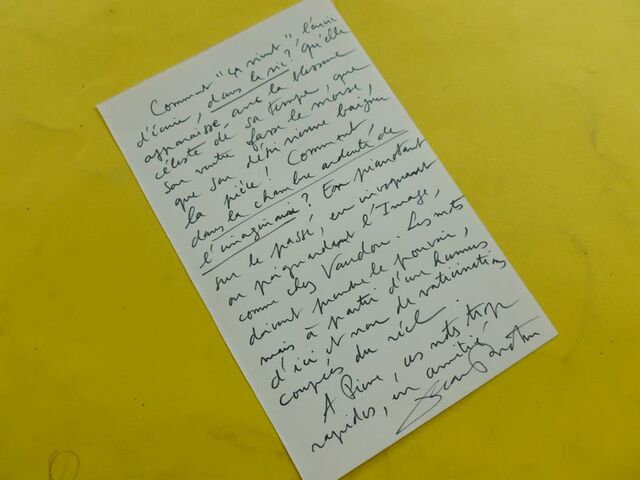 Comment "ça vient" l'envie
d'écrire, dans la vie? qu'elle
apparaisse avec la blessure
céleste de sa tempe, que
son ventre fasse le morse,
que son désir vienne baigner
la pièce! Comment
dans la chambre ardente de
l'imaginaire? En pianotant
sur le passé, en invoquant
ou poignardant l'Image,
comme chez Vaudou. Les mots
doivent prendre le pouvoir,
mais à partir d'un humus
d'ici et non de vaticinations
coupées du réel.
A Pierre, ces mots trop
rapides, en amitié